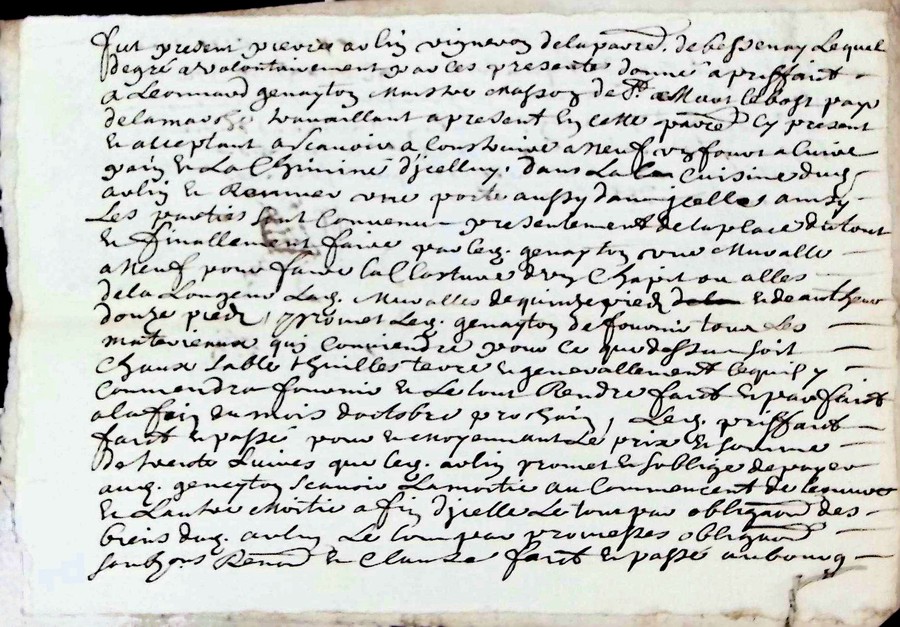 fut present pierre aulin vigneron de la parre. de bessenay lequel
de gré a volontairement par ces presentes donné a priffaict
a Leonnard genayton Maistre Masson de St a Mant le bost pays
de la marche travaillant a present en cette parre. Cy present
et acceptant a scauoir a Construire a neuf un four a Cuire
pain et La Chiminé d'jcelluy, dans La Cuisine dud.
aulin et Remuer une porte aussy dans jcelle ainsy
Les parties sont Convenu presentement de la place de tout
et finallement faire par led. genayton une Muralle
a neuf pour faire la Clasture d'un Chapit ou alles
de la Longeur Lad. Muralles de quinze pieds et de autheur
douze pieds, promet Led. genayton de fournir tous Les
materieaux quj Conviendra pour Ce que dessus soit
Chaux sable thuilles terre et generallement lequil y
Conviendra fournir et Le tout Rendre faict et parfaict
a la fin du mois d'octobre prochain, Led. priffaict
faict et passé pour et moyennant Le prix et somme
de trente Livres que led. aulin promet et soblige de payer
aud. genayton scauoir La moitie au Commencent de leuure
et Lautre Moitie a fin d'jcelle Le tout par obligaon des
biens dud. aulin Le tout par promesses obligaon
soubzons Renon et Clauze faict et passé au bourg